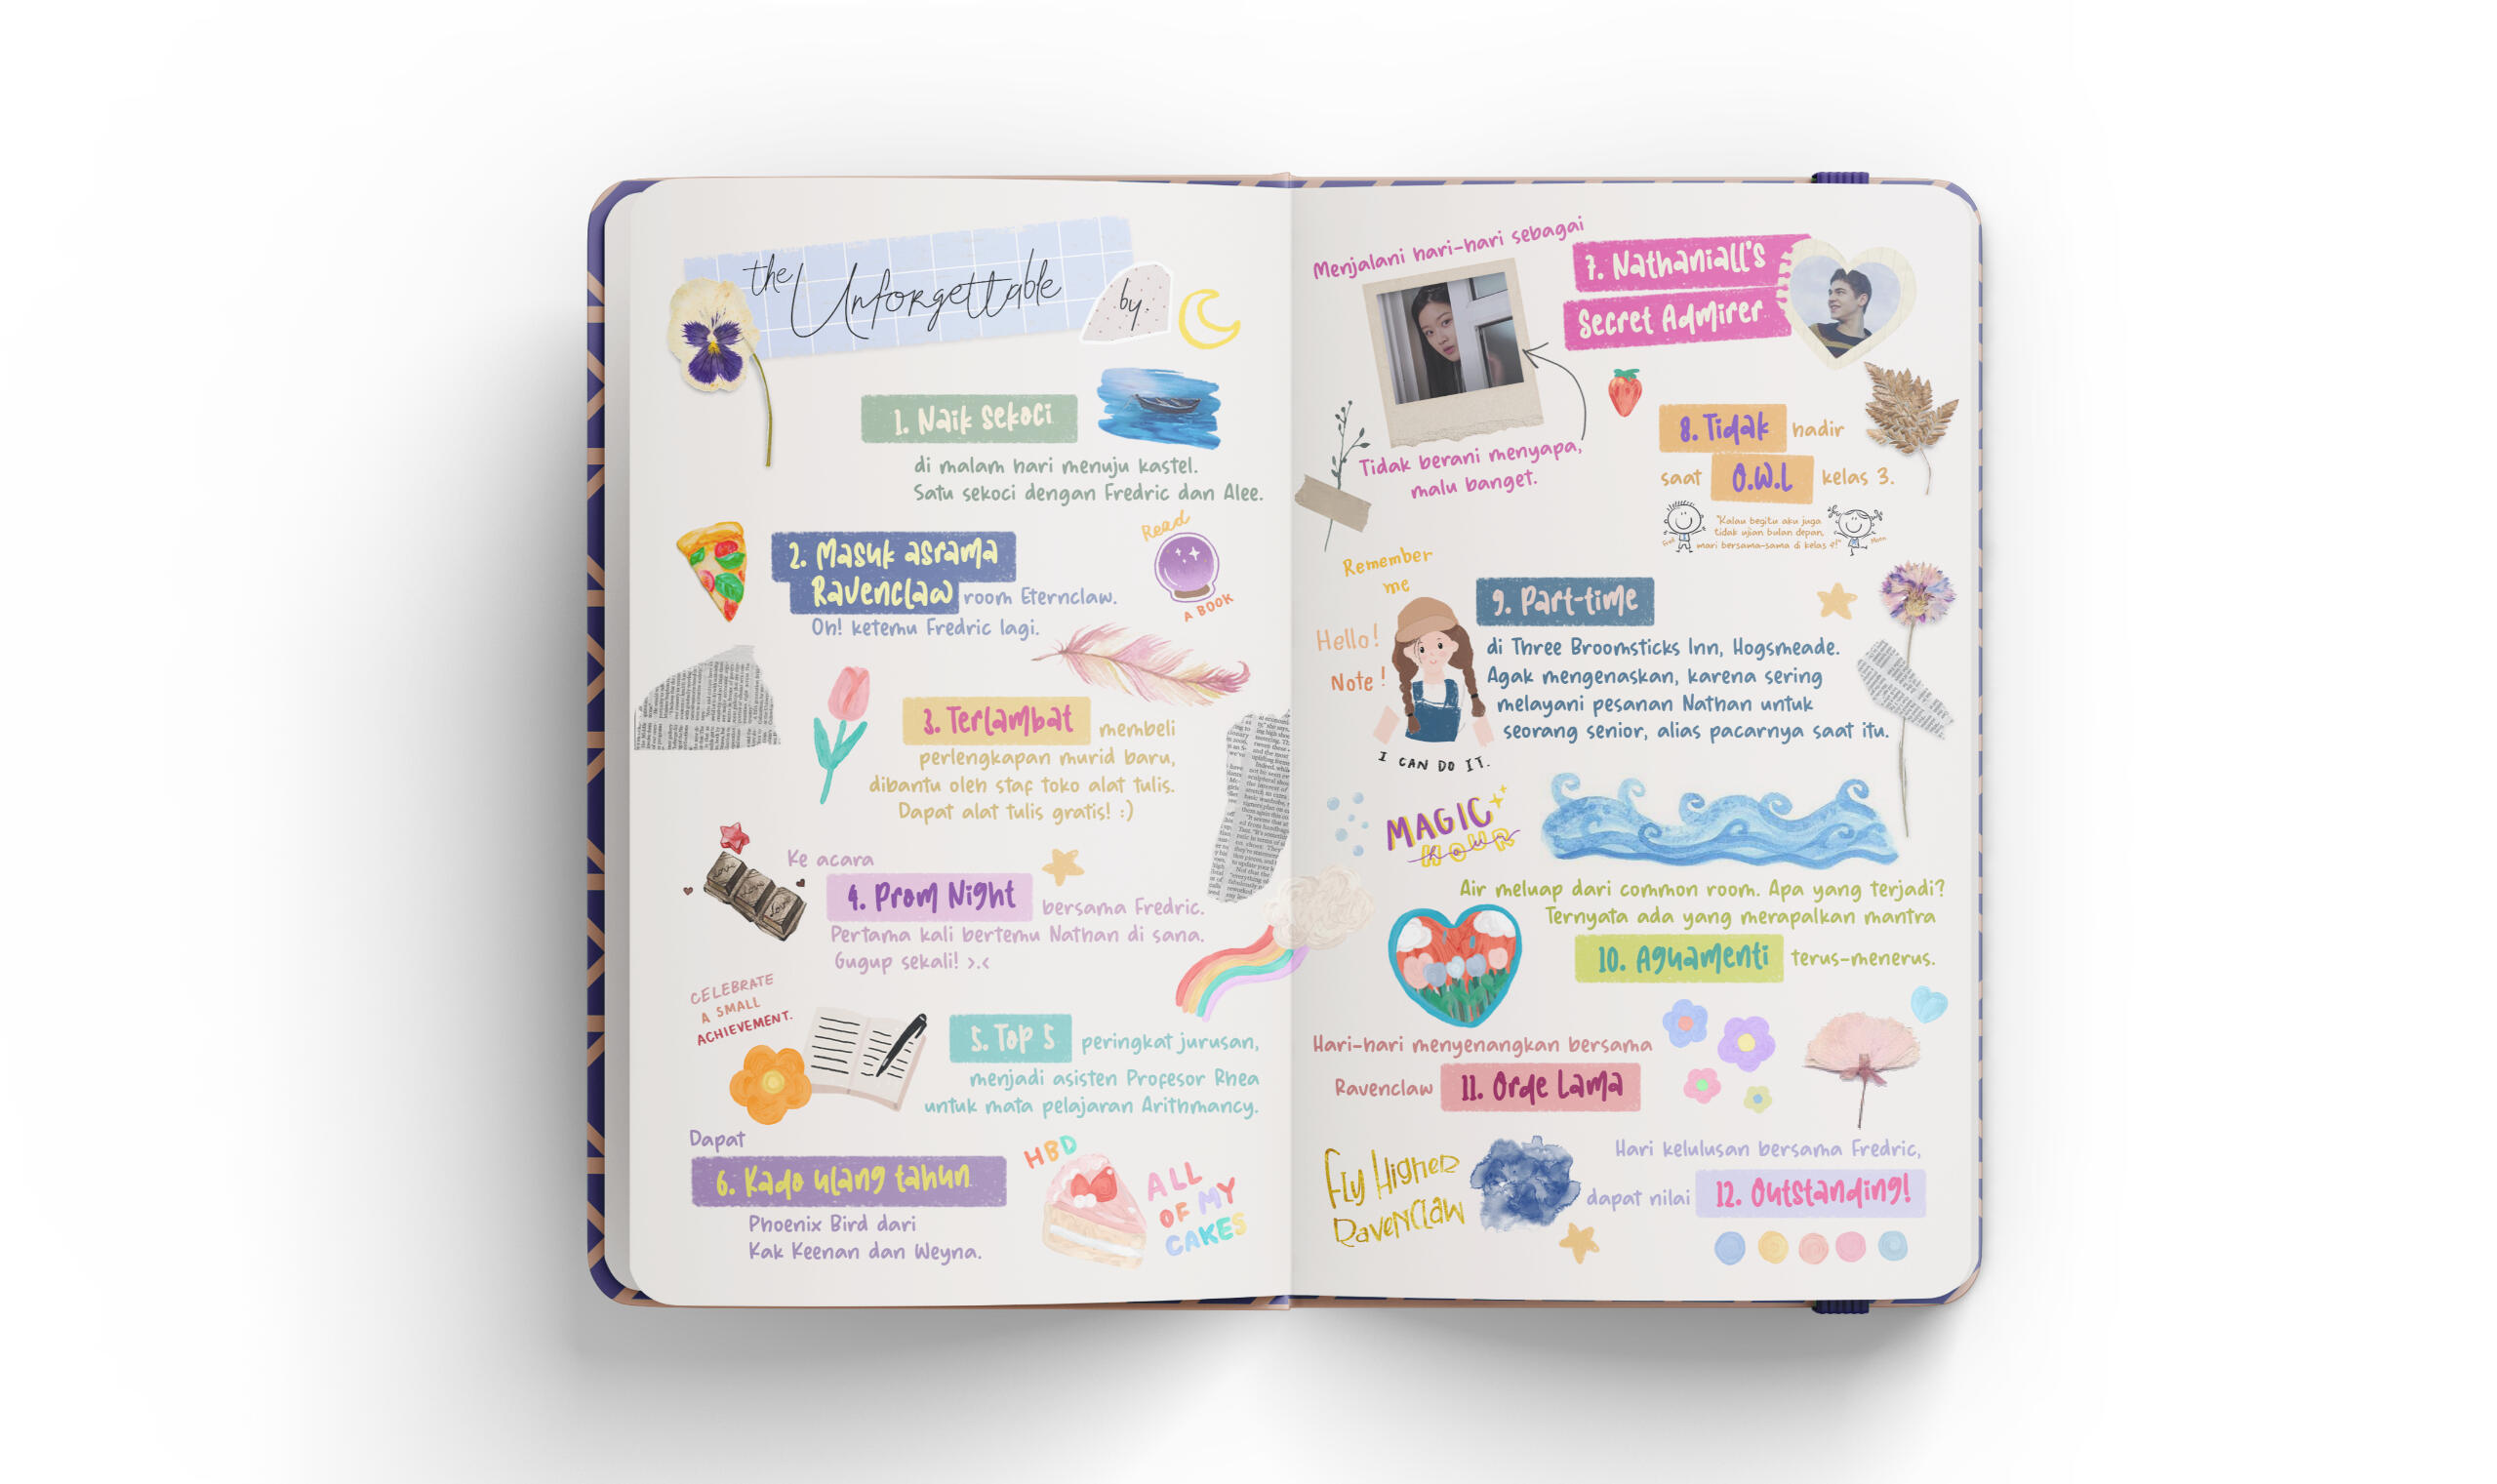 the Unforgettable
by.
1. Naik sekoci
di malam hari menuju kastel.
Satu sekoci dengan Fredric dan Alee.
2. Masuk asrama
Ravenclaw room Eternclaw.
Oh! ketemu Fredric lagi.
Read
A BOOK
3. Terlambat membeli
perlengkapan murid baru,
dibantu oleh staf toko alat tulis.
Dapat alat tulis gratis! :)
Ke acara
4. Prom Night bersama Fredric.
Pertama kali bertemu Nathan di sana.
Gugup sekali! >.<
CELEBRATE
A SMALL
ACHIEVEMENT.
5. Top 5 peringkat jurusan,
menjadi asisten Profesor Rhea
untuk mata pelajaran Arithmancy.
Dapat
6. Kado ulang tahun
Phoenix Bird dari
Kak Keenan dan Weyna.
HBD
ALL
OF MY
CAKES
Menjalani hari-hari sebagai
7. Nathaniall's
Secret Admirer
Tidak berani menyapa,
malu banget.
8. Tidak hadir
saat O.W.L kelas 3.
"Kalau begitu aku juga
tidak ujian bulan depan,
mari bersama-sama di kelas
Remember
me
Hello!
Note!
I CAN DO IT.
9. Part-time
di Three Broomsticks Inn, Hogsmeade.
Agak mengenaskan, karena sering
melayani pesanan Nathan untuk
seorang senior, alias pacarnya saat itu.
MAGIC
HOUR
Air meluap dari common room. Apa yang terjadi?
Ternyata ada yang merapalkan mantra
10. Aguamenti terus-menerus.
Hari-hari menyenangkan bersama
Ravenclaw 11. Orde Lama
Fly Higher
Ravenclaw
Hari kelulusan bersama Fredric,
dapat nilai 12. Outstanding!